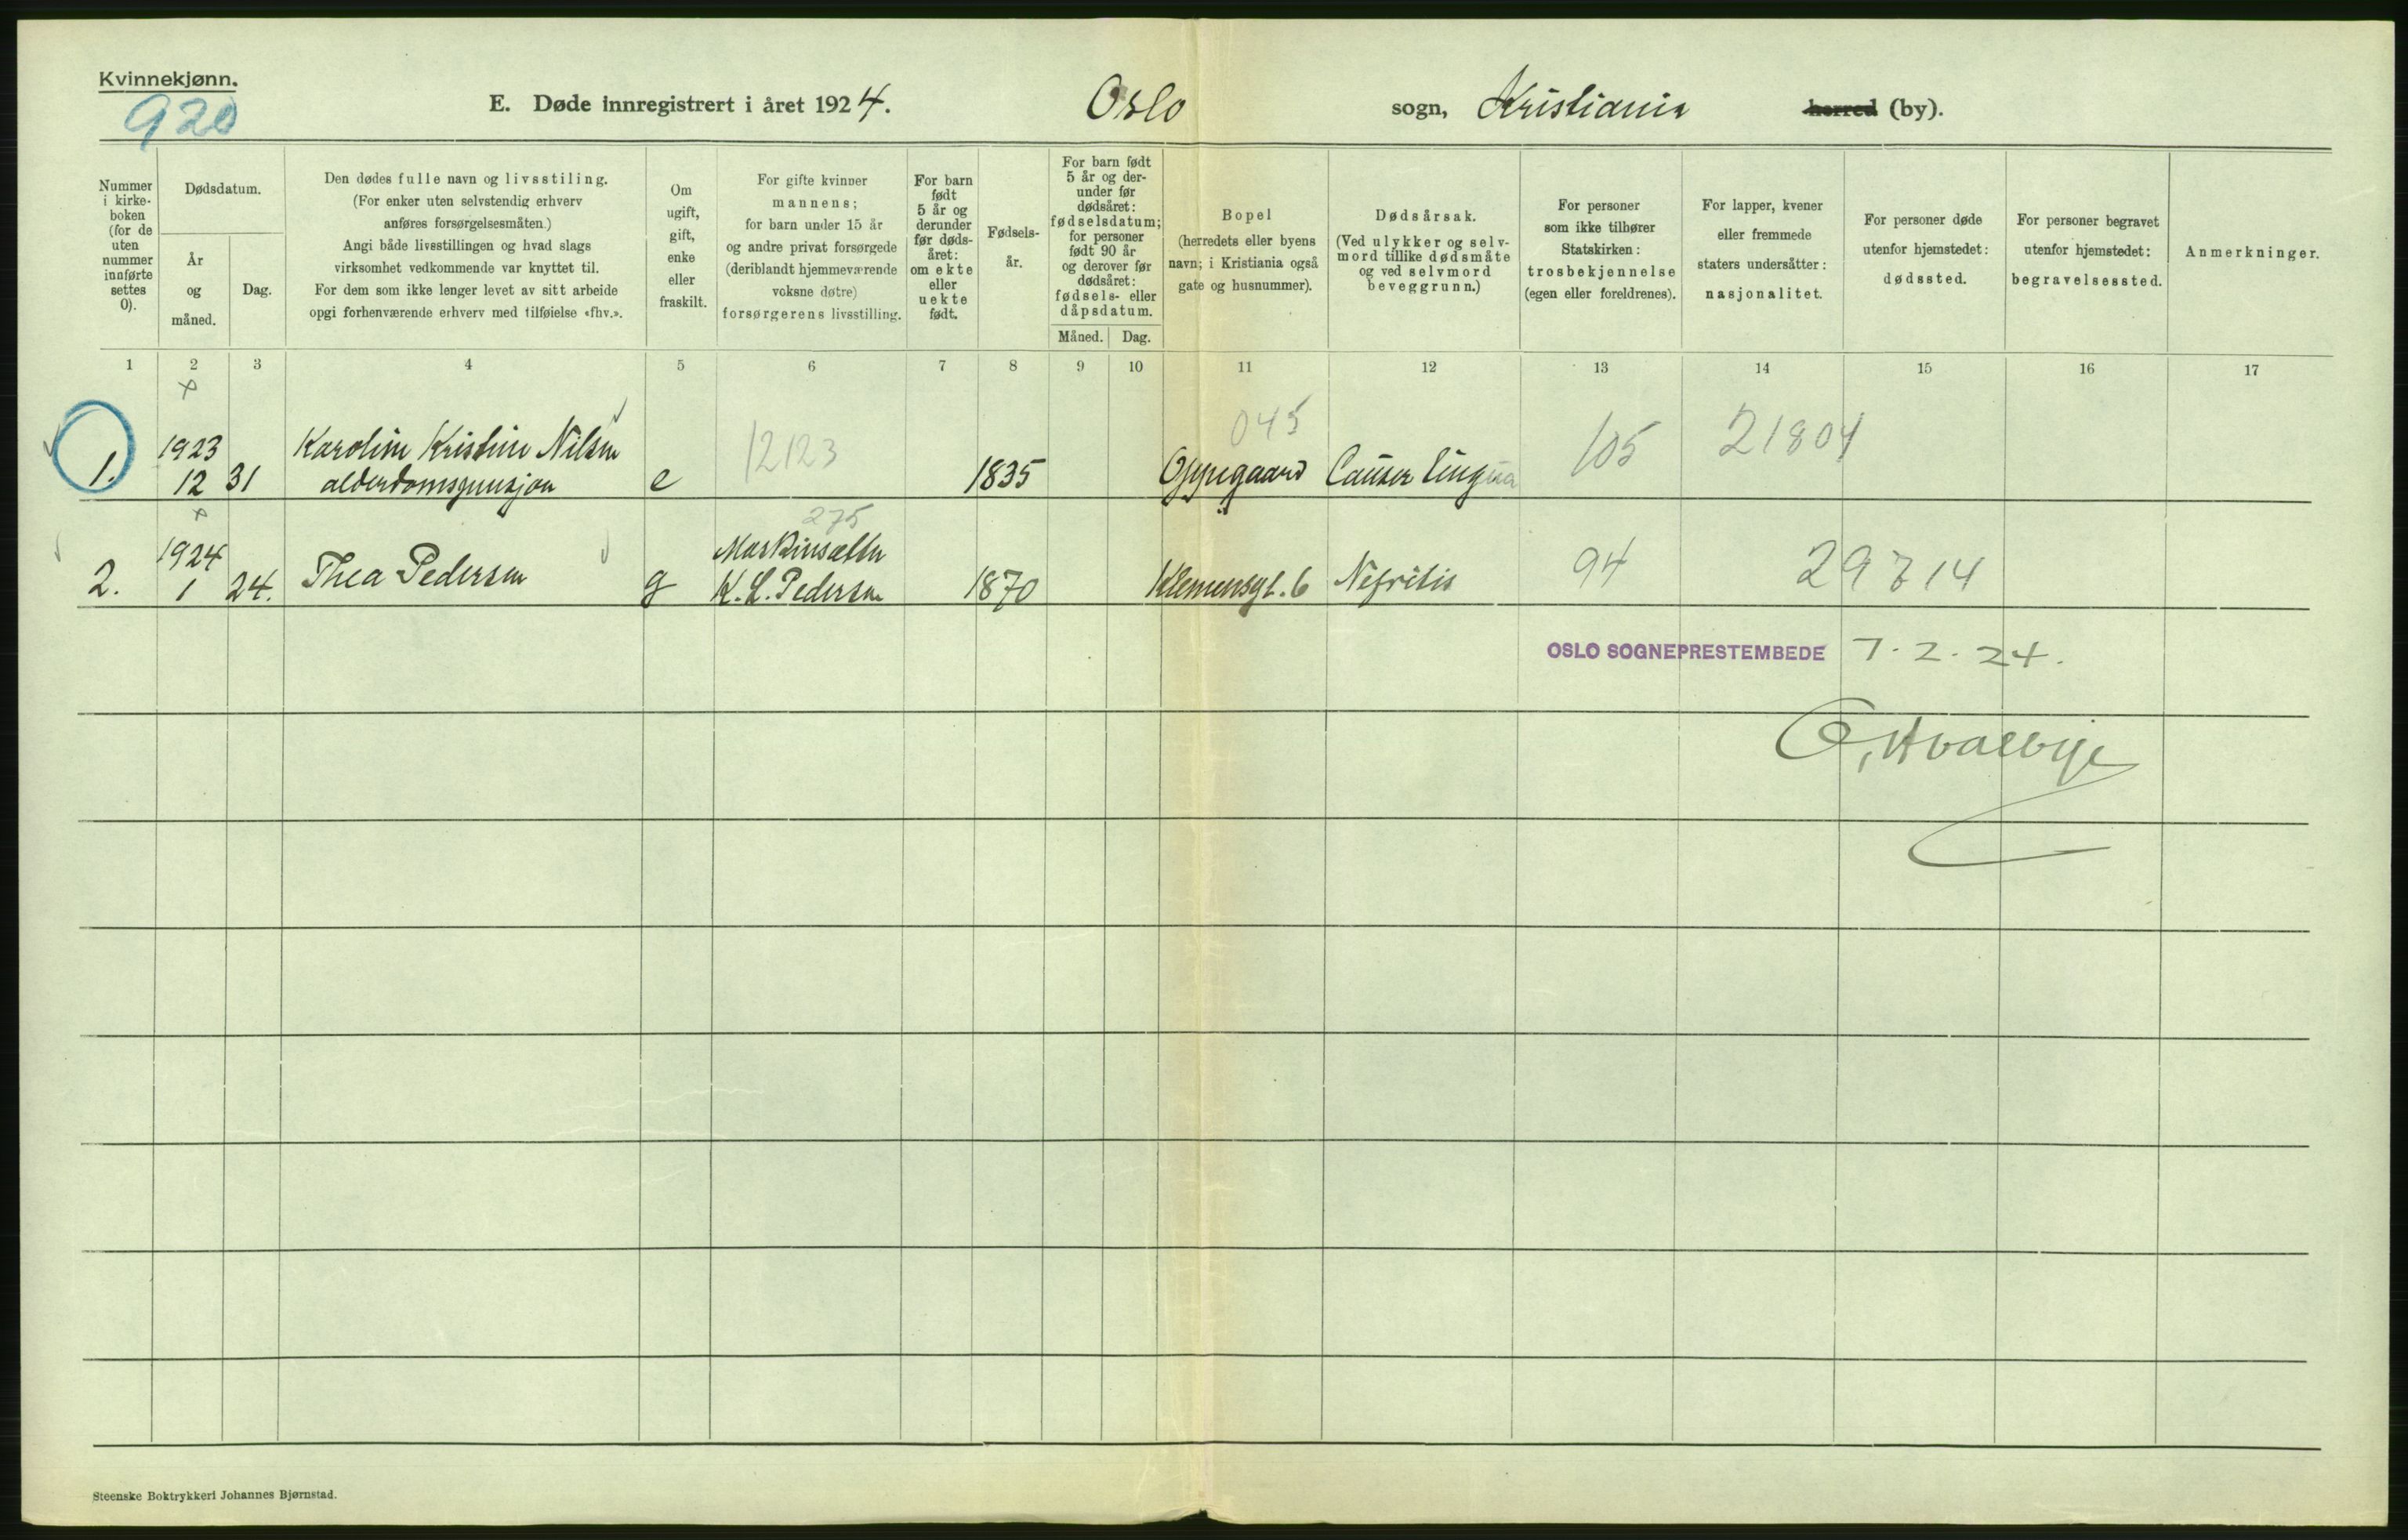 Kvinnekjønn.
920
E. Døde innregistrert i året 1924. Oslo sogn, Kristiania herred (by).
Nummer
i kirke-
boken
(for de
uten
nummer
innførte
settes
0).
Dødsdatum.
År
og
måned.
Dag.
Den dødes fulle navn og livsstiling.
(For enker uten selvstendig erhverv
anføres forsørgelsesmåten.)
Angi både livsstillingen og hvad slags
virksomhet vedkommende var knyttet til.
For dem som ikke lenger levet av sitt arbeide
opgi forhenværende erhverv med tilføielse «fhv.».
Om
ugift,
gift,
enke
eller
fraskilt.
For gifte kvinner
mannens;
for barn under 15 år
og andre privat forsørgede
(deriblandt hjemmeværende
voksne døtre)
forsørgerens livsstilling.
For barn
født
5 år og
derunder
før døds-
året:
om ekte
eller
uekte
født.
Fødsels-
år.
For barn født
5 år og der-
under før
dødsåret:
fødselsdatum;
for personer
født 90 år
og derover før
dødsåret:
fødsels- eller
dåpsdatum.
Måned. Dag.
Bopel
(herredets eller byens
navn; i Kristiania også
gate og husnummer).
Dødsårsak.
(Ved ulykker og selv-
mord tillike dødsmåte
og ved selvmord
beveggrunn.)
For personer
som ikke tilhører
Statskirken:
trosbekjennelse
(egen eller foreldrenes).
For lapper, kvener
eller fremmede
staters undersåtter:
nasjonalitet.
For personer døde
utenfor hjemstedet:
dødssted.
For personer begravet
utenfor hjemstedet:
begravelsessted.
Anmerkninger.
1 2 3 4 5 6 7 8 9 10 11 12 13 14 15 16 17
045
1923 Karoline Kristine Nilsen 12123 105 21804
1. 12 31 alderdomspensjon e 1835 Oppegaard Cancer lingua
275
1924 Maskinsætter
2. 1 24. Thea Pedersen g K. L. Pedersen 1870 Klemensgt. 6 Nefritis 94 29714
OSLO SOGNEPRESTEMBEDE 7.2.24.
Steenske Boktrykkeri Johannes Bjørnstad.